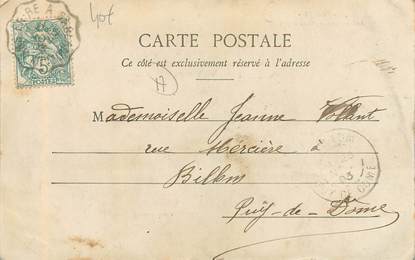 CARTE POSTALE
Ce côté est exclusivement réservé à l'adresse
Mademoiselle Jeanne Volant
rue Mercière à
Billom
Puy-de-Dôme
5